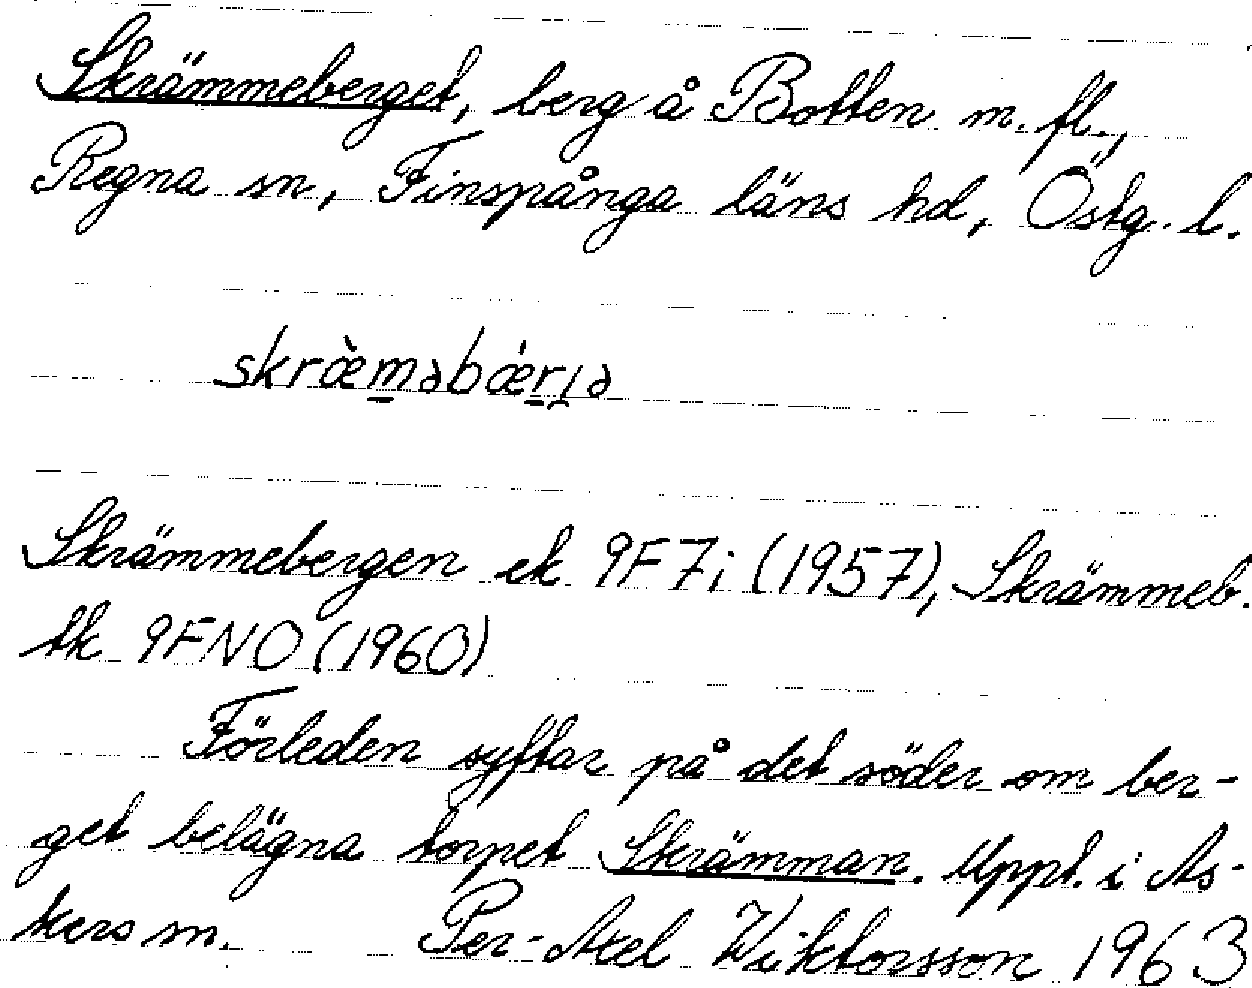 Skrämmeberget, berg å Botten m. fl.,
Regna sn, Finspånga läns hd, Östg. l.
skræ̀m̲əbǽr̲ı̯ə
Skrämmebergen ek 9F7i (1957), Skrämmeb.
tk 9FNO (1960)
Förleden syftar på det söder om ber-
get belägna torpet Skrämman. Uppt. i As-
kers sn. Per-Axel Wiktorsson 1963